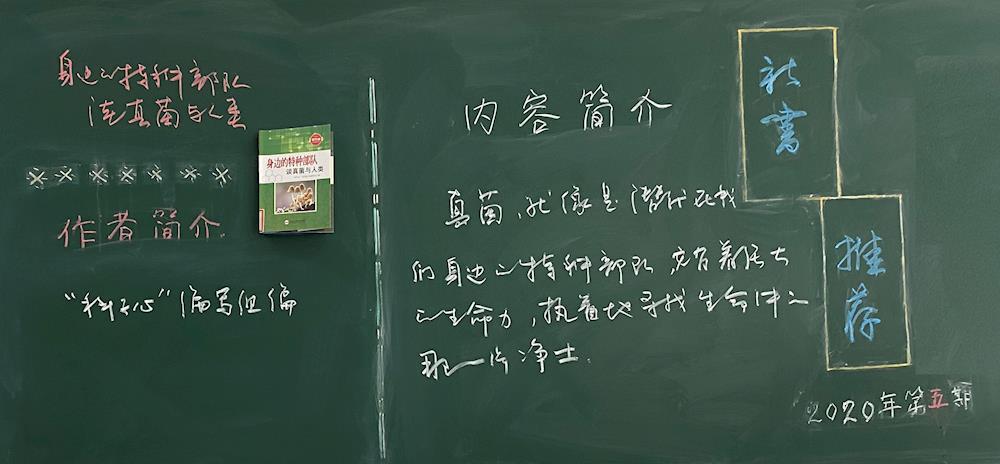 身边的特种部队
谈真菌与人类
身边的特种部队
谈真菌与人类
作者简介
“科学心”编写组编
内容简介
真菌,就像是潜伏在我
们身边的特种部队,它有着强大
的生命力,执着地寻找生命中的
那一片净土.
新书
推荐
2020年第五期